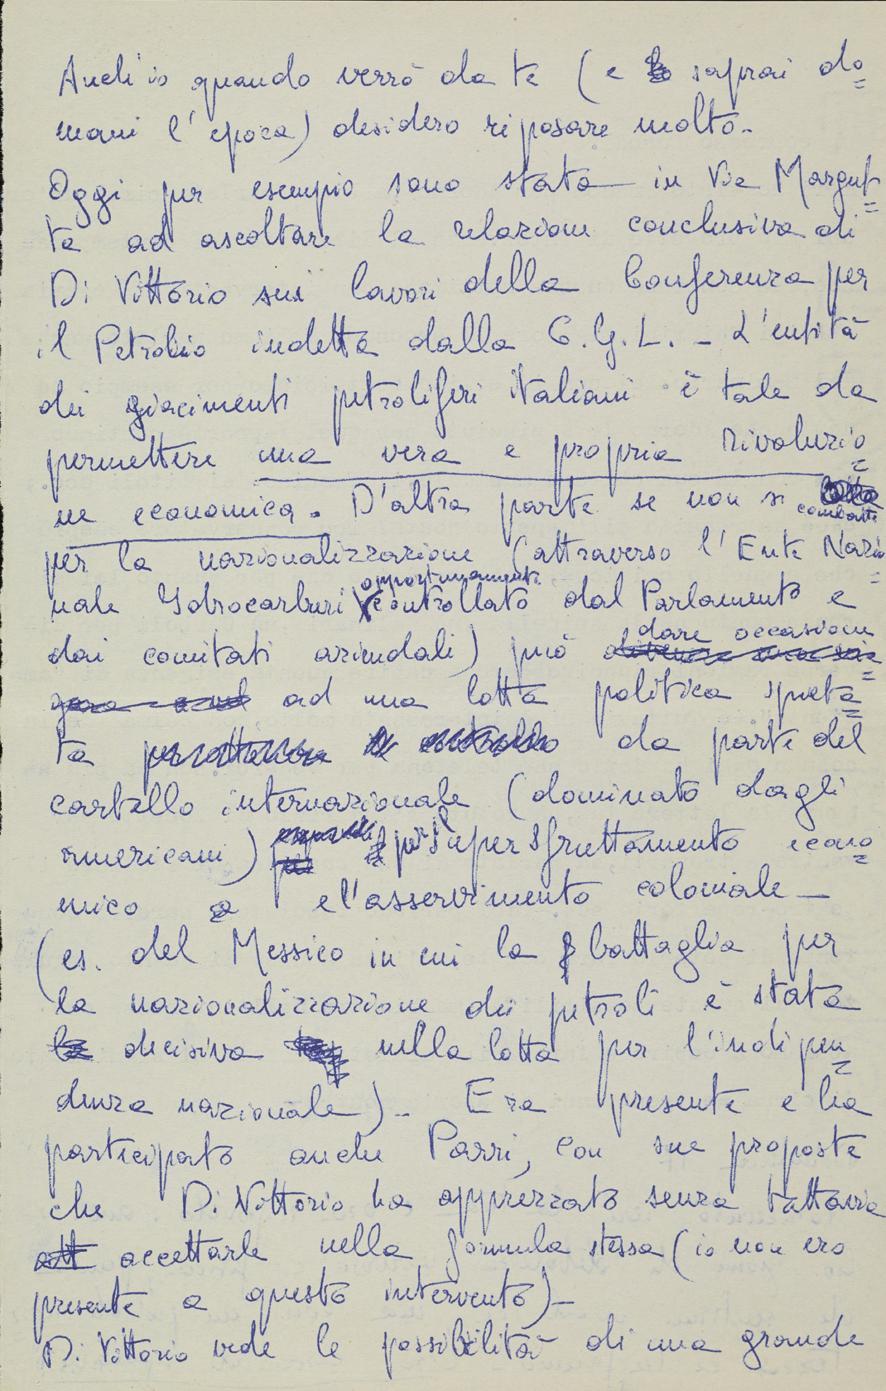 Anch'io quando verrò da te (e saprai do=
mani l'epoca) desidero riposare molto.
Oggi per esempio sono stata in Via Margut=
ta ad ascoltare la relazione conclusiva di
Di Vittorio sui lavori della Conferenza per
il Petrolio indetta dalla C.G.L. - L'entità
dei giacimenti petroliferi italiani è tale da
permettere una vera e propria rivoluzio=
ne economica. D'altra parte se non si
combatte
per la nazionalizzazione (attraverso l'Ente Nazio=
opportunamente
nale Idrocarburi controllato dal Parlamento e
dare occasione
dai comitati aziendali) può
ad una lotta politica spieta=
ta da parte del
cartello internazionale (dominato dagli
americani) per il supersfruttamento econo=
mico e l'asservimento coloniale -
(es. del Messico in cui la battaglia per
la nazionalizzazione dei petroli è stata
decisiva nella lotta per l'indipen=
denza nazionale). - Era presente e ha
participato anche Parri, con sue proposte
che Di Vittorio ha apprezzato senza tuttavia
accettarle nella formula stessa (io non ero
presente a questo intervento) -
Di Vittorio vede le possibilità di una grande